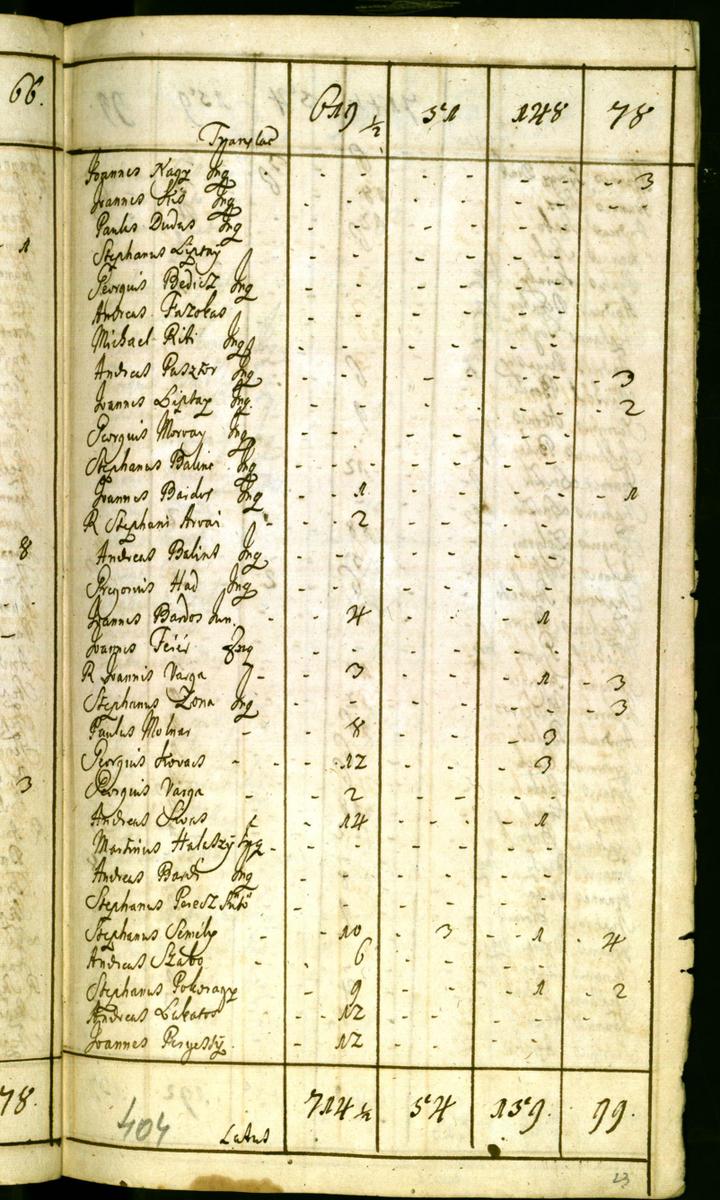 66.
1
8
3
78.
Translat 619 ½ 51 148 78
Joannes Nagy Inq - - - - - - - - 3
Joannes Kis Inq - - - - - - - -
Paulus Dudas Inq - - - - - - - -
Stephanus Liptay - - - - - - - -
Georgius Bedicz Inq - - - - - - - -
Andreas Fazekas - - - - - - - -
Michael Riti Inq - - - - - - - -
Andreas Pasztor Inq - - - - - - - 3
Joannes Liptay Inq. - - - - - - - 2
Georgius Morvay Inq - - - - - - - -
Stephanus Balint Inq - - - - - - - -
Joannes Bardos Inq - 1 - - - - - 1
R Stephani Arvai - - 2 - - - - - -
Andreas Balint Inq - - - - - - - -
Gregorius Had Inq - - - - - - - -
Joannes Bardos Jun. - - 4 - - - 1 - -
Joannes Fejér Inq - - - - - - - -
R Joannis Varga - - 3 - - - 1 - 3
Stephanus Zona Inq - - - - - - - 3
Paulus Molnar - - 8 - - - 3 - -
Georgius Kovacs - - - 12 - - - 3 - -
Georgius Varga - - 2 - - - - - -
Andreas - 14 - - - 1 - -
Martinus Halaszy Inq - - - - - - - - -
Andreas Bardi Inq - - - - - - - -
Stephanus Peresz - - - - - - - -
Stephanus - - 10 - 3 - 1 - 4
Andreas Szabo - - 6 - - - - - -
Stephanus Pokoragy - 9 - - - 1 - 2
Andreas Lakatos - 12 - - - - - -
Joannes - 12 - - - - - -
404 Latus 714 ½ 54 159. 99.
23